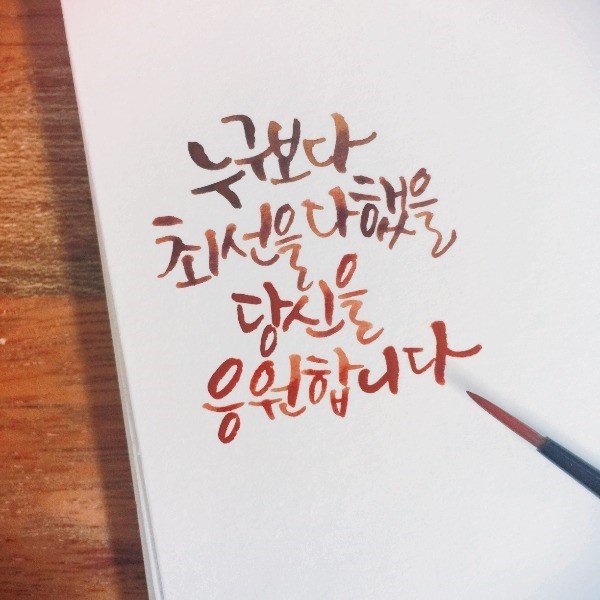 누구보다
최선을 다했을
당신을
응원합니다